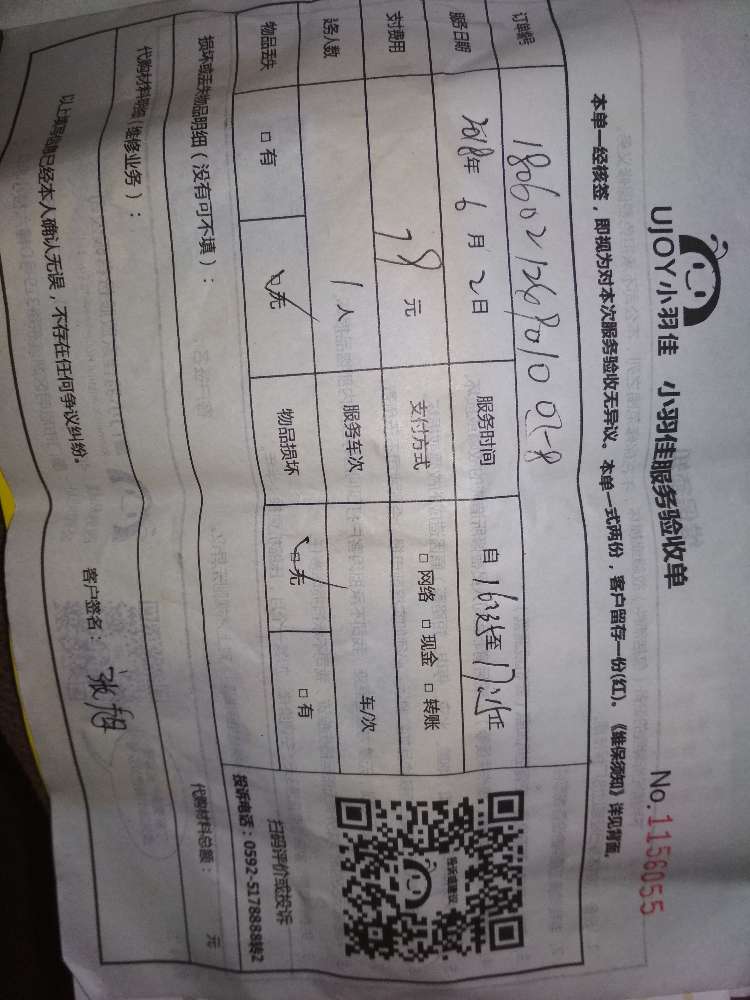 UJOY小羽佳 小羽佳服务验收单 No.1156055
本单一经核签，即视为对本次服务验收无异议。本单一式两份，客户留存一份(红)。《维保须知》详见背面。
订单编号
服务日期 2018年 6 月 2 日 服务时间 自 至
支付费用 78 元 支付方式 □ 网络 □ 现金 □ 转账
服务人数 1 人 服务车次 车/次
物品丢失 □ 有 □ 无 物品损坏 □ 无 □ 有
投诉或建议
扫码评价或投诉
投诉电话：0592-5178888转2
损坏或丢失物品明细（没有可不填）：
代购材料明细（维修业务）： 代购材料总额： 元
以上填写 已经本人确认无误，不存在任何争议纠纷。 客户签名：